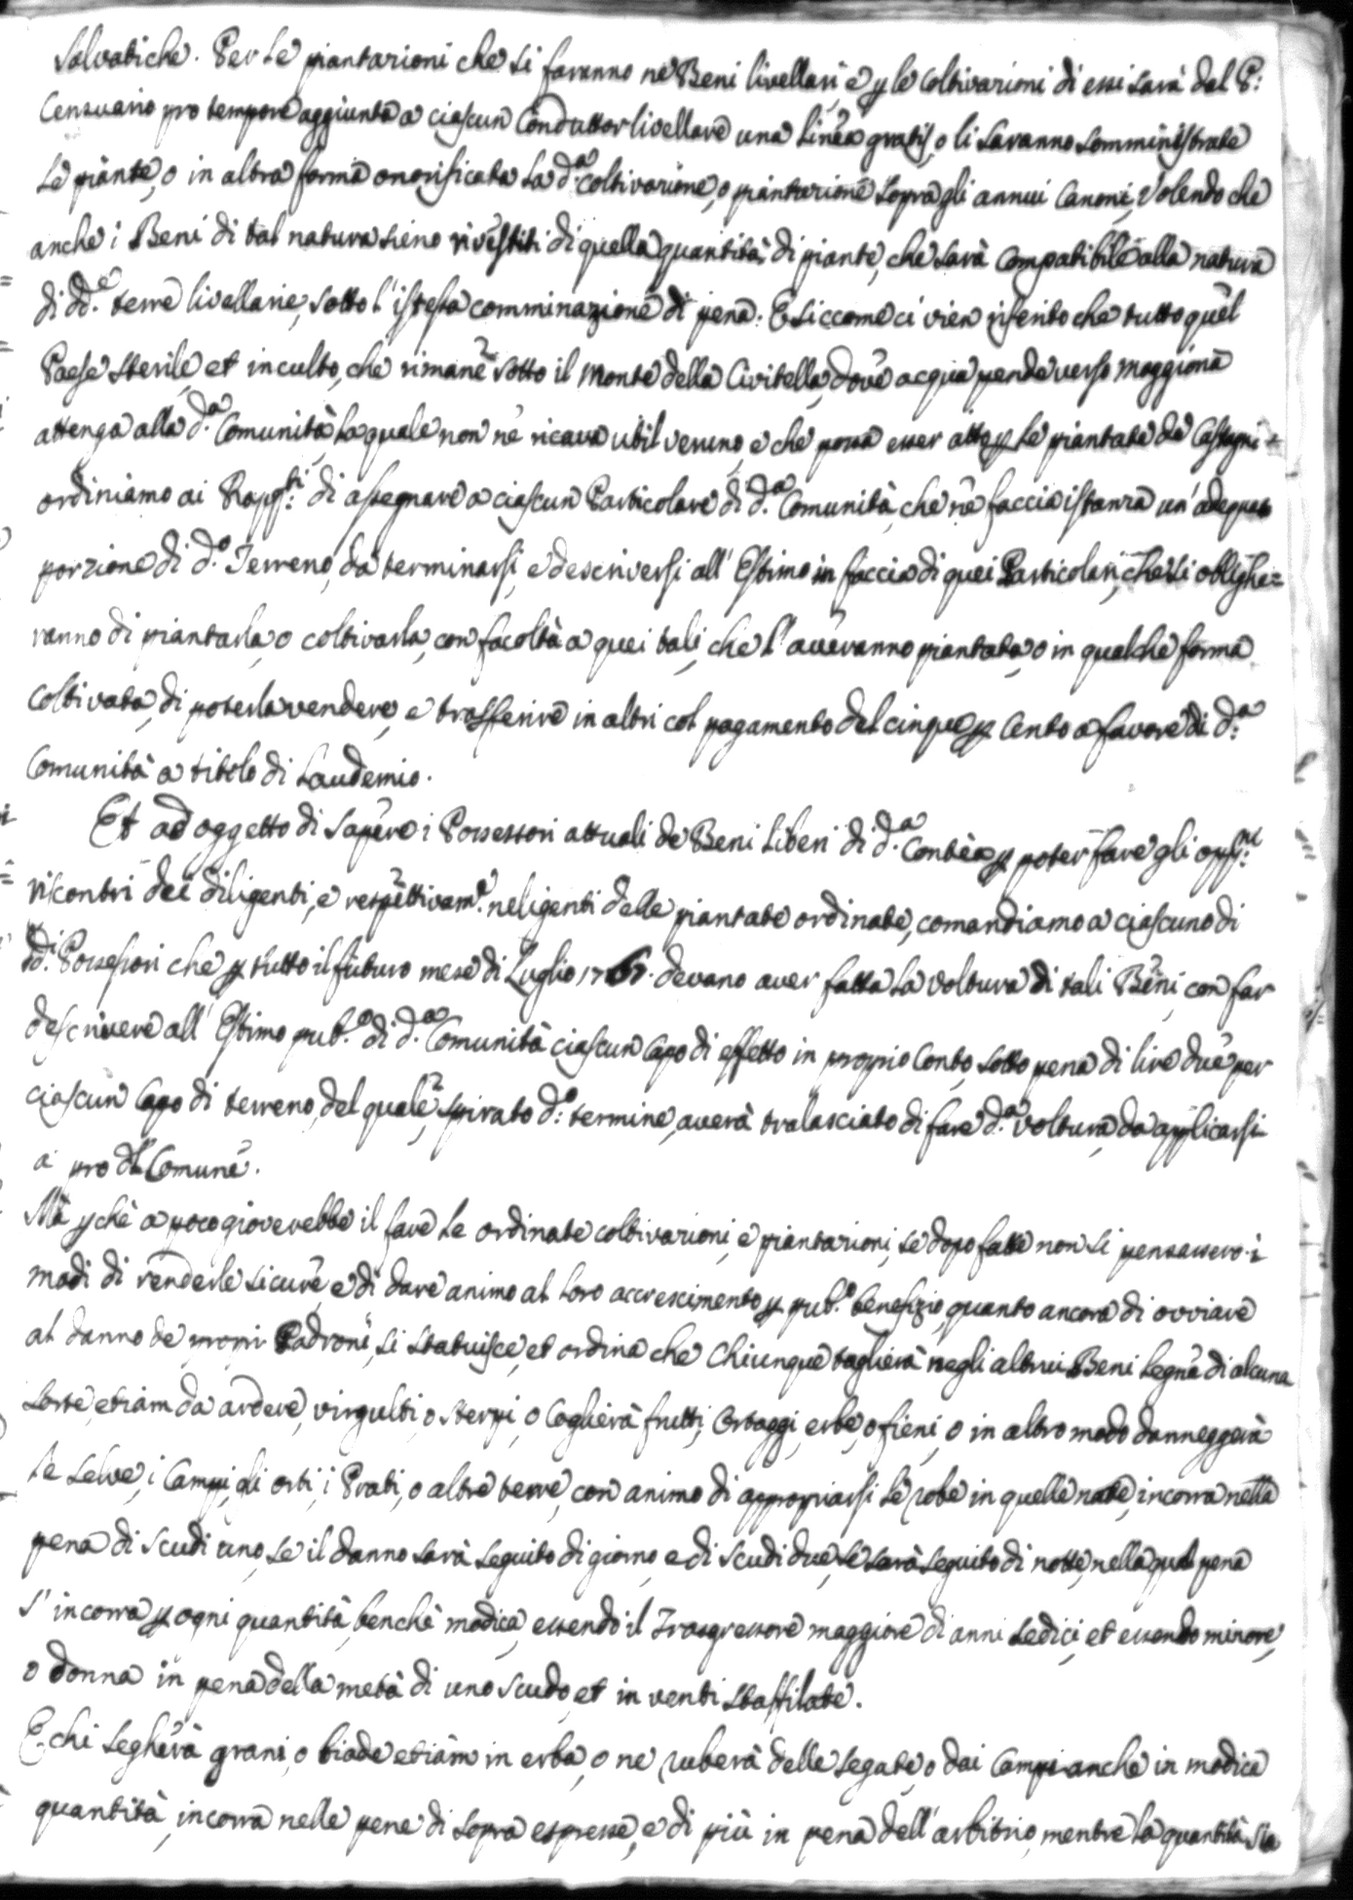 salvatiche. Per le piantazioni che si faranno ne Beni livellarj e p le coltivazioni di essi sarà dal P:
Censuario pro tempore aggiunta a ciascun Conduttor livellare una linea gratis, o li saranno somministrate
le piante, o in altra forma onorificata la d.a coltivazione, o piantazione sopra gli annui Canoni, Volendo che
anche i Beni di tal natura sieno rivestiti di quella quantità di piante, che sarà compatibile alla natura
di dd.e terre livellarie, sotto l'istessa comminazione di pena. E siccome ci vien riferito che tutto quel
Paese sterile, et inculto, che rimane sotto il Monte della Civitella, dove acqua pende verso Maggiona
attenga alla d.a Comunità, la quale non ne ricava util veruno, e che possa esser atto p le piantate de Castagni =
ordiniamo ai Rapp.ti di assegnare a ciascun Particolare di d.a Comunità, che ne faccia istanza un'adequata
porzione di d.o Terreno, da terminarsi, e descriversi all'Estimo in faccia di quei Particolari, che si obblighe=
ranno di piantarla, o coltivarla, con facoltà a quei tali, che l'averanno piantata, o in qualche forma
coltivata, di poterla vendere, e trasferire in altri col pagamento del cinque p Cento a favore di d.a
Comunità a titolo di Laudemio.
Et ad oggetto di sapere i Possessori attuali de Beni liberi di d.a Contèa p poter fare gli opp.ni
riscontri dei diligenti, e respettivam.e neligenti delle piantate ordinate, comandiamo a ciascuno di
dd.i Possessori che p tutto il futuro mese di Luglio devano aver fatta la voltura di tali Beni, con far
descrivere all'Estimo pub.o di d.a Comunità ciascun Capo di effetto in proprio Conto, sotto pena di lire due per
ciascun Capo di terreno, del quale, spirato d.o termine, averà tralasciato di fare d.a voltura, da applicarsi
a pro del Comune.
Mà p chè a poco gioverebbe il fare le ordinate coltivazioni, e piantazioni, se dopo fatte non si pensassero i
modi di renderle sicure, e di dare animo al loro accrescimento p pub.o benefizio, quanto ancora di ovviare
al danno de proprj Padroni, si statuisce, et ordina che Chiunque taglierà negli altrui Beni legne di alcuna
sorte, etiam da ardere, virgulti, o sterpi, o Coglierà frutti, Ortaggi, erbe, o fieni, o in altro modo danneggerà
le selve, i Campi, gli orti, i Prati, o altre terre, con animo di appropriarsi le robe in quelle nate, incorra nella
pena di scudi uno, se il danno sarà seguito di giorno, e di scudi due, se sarà seguito di notte, nella qual pena
s'incorra p ogni quantità, benchè modica, essendo il Trasgressore maggiore di anni sedici, et essendo minore,
o donna in pena della metà di uno scudo, et in venti staffilate.
E chi segherà grani, o biade etiam in erba, o ne ruberà delle segate, o dai Campi anche in modica
quantità, incorra nelle pene di sopra espresse, e di più in pena dell'arbitrio, mentre la quantità sia